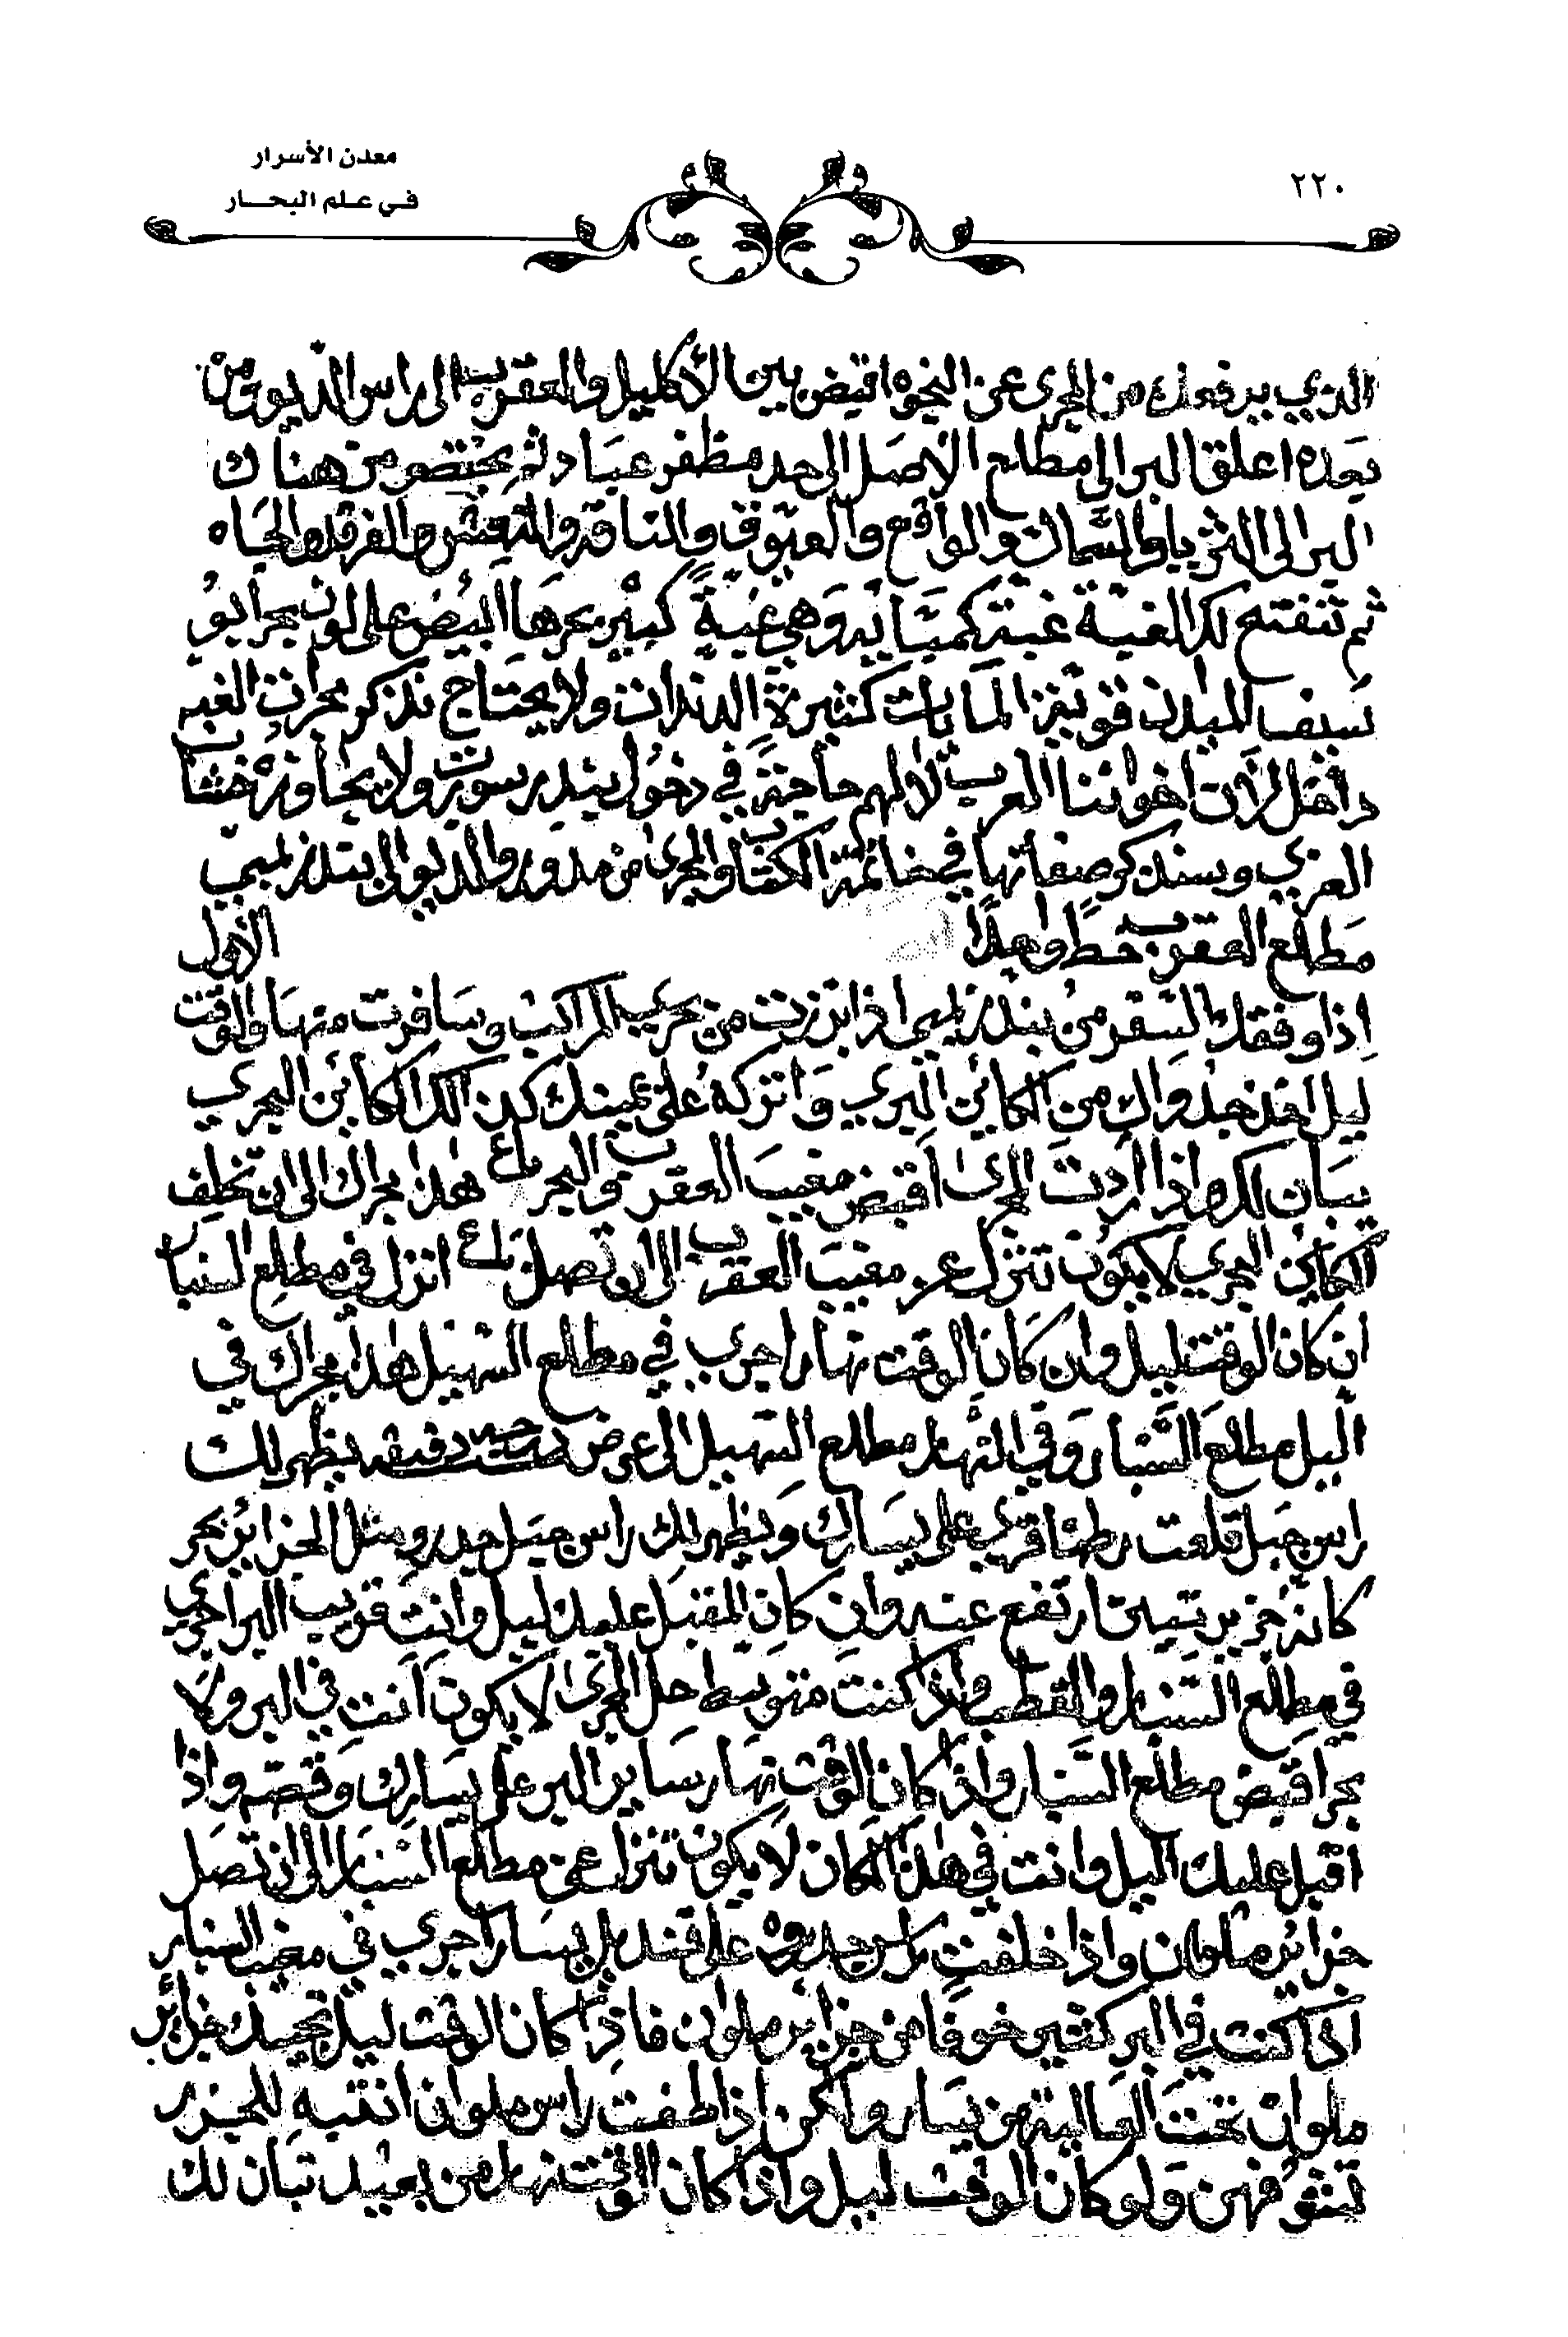 ٢٢٠
معدن الأسرار
في علم البحار
الذي يرفعك من المجرى عن النجوه اقبض بين الأكليل والعقرب الى راس الديو ومن
بعده اعلق البر الى مطلع الاصل الى حد مظفر عباد ثم يختصر من هناك
البر الى الثريا والسماك والواقع والعيوق والناقه والنعش والفرقد والجاه
ثم تنفتح لك الغبة غبة كمباية وهي غبةٍ كبير بحرها ابيض على لون بحر ابو
سيف البلدن قوتين المايات كثيرة الدندان ولا يحتاج نذكر مجرات الغبه
داخل لأن اخواننا العرب لا لهم حاجة في دخول بندر سورت ولا يتجاوز خشاب
العربي وسنذكر صفاتها في خاتمة الكتاب والمجرى من مدور والديو الى بندر لمبي
مطلع العقرب خطا واحدًا الاول
إذا وفقك السفر من بندر لمبي اذا برزت من بحري المراكب وسافرت منها والوقت
ليل اخذ خذواك من الكائن البري واتركه على يمينك كذالك الكائن البحري
يبان لك واذا اردت المجرى اقبض مغيب العقرب والبحر باع هذا مجراك الى ان تخلف
الكائن البحري لا يكون تنزل عن مغيب العقرب الى ان تصل باع انزل في مطلع السنبار
ان كان الوقت ليل وان كان الوقت نهار اجري في مطلع السهيل هذا مجراك في
الليل مطلع السنبار وفي النهار مطلع السهيل الى عرض دقيقه يظهر لك
راس جبل قلعت قريب على يسارك ويظهر لك راس جبل جدرو مثل الجزائر بحر
كانه جزيرتين ارتفع عنه وان كان المقبل عليك ليل وانت قريب البر اجري
في مطلع السنبار والقطب واذا كنت متوسط حل المجرى لا يكون انت في البر ولا
بحر اقبض مطلع السنبار واذا كان الوقت نهار ساير البر على يسارك وقصه واذا
اقبل عليك الليل وانت في هذا المكان لا يكون تنزل عن مطلع السنبار الى ان تصل
جزائر ملوان واذا خلفت راس جدروه على قنديل يسار اجري في مغيب السنبار
اذا كنت في البر كثير خوفا من جزائر ملوان فاذا كان الوقت ليل تجيك جزائر
ملوان تحت العالية من يسار ولكن اذا طفت راس ملوان انتبه للجزر
تشوفهن ولو كان الوقت ليل واذا كان الوقت نهار من بعيد تبان لك